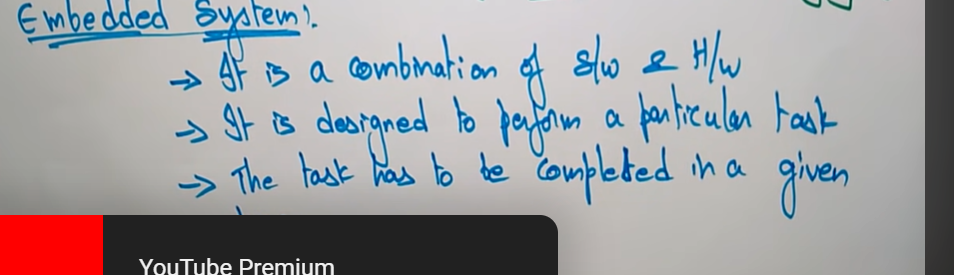 Embedded System:
→ It is a combination of S/w & H/w
→ It is designed to perform a particular task
→ The task has to be completed in a given
YouTube Premium